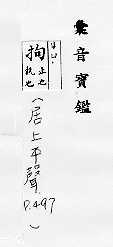 彙音寶鑑
拘
止也
執也
(居上平聲
P.497
)